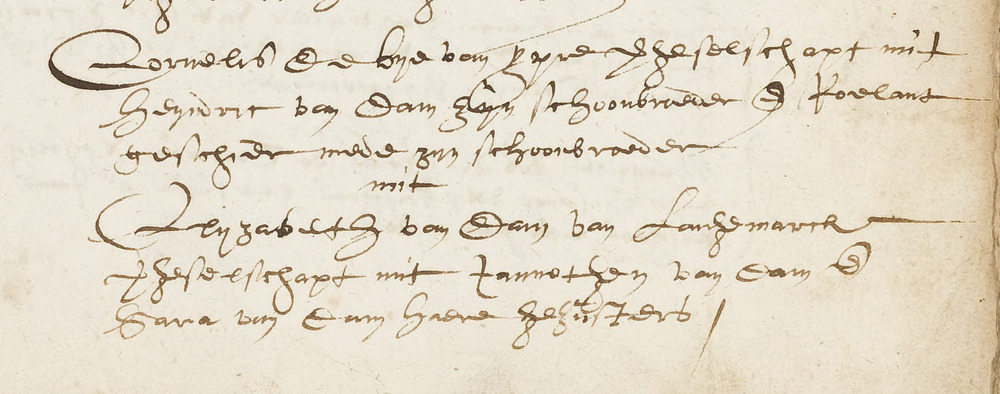 Cornelis de bye van ypre vergeselschapt mit
heyndric van dam zijn schoonbroeder & Roelant
geschier mede zijn schoonbroeder
mit
Elyzabeth van Dam van Langemarck
vergeselschapt mit Jannethen van dam &
Sara van dam haere gezusters /